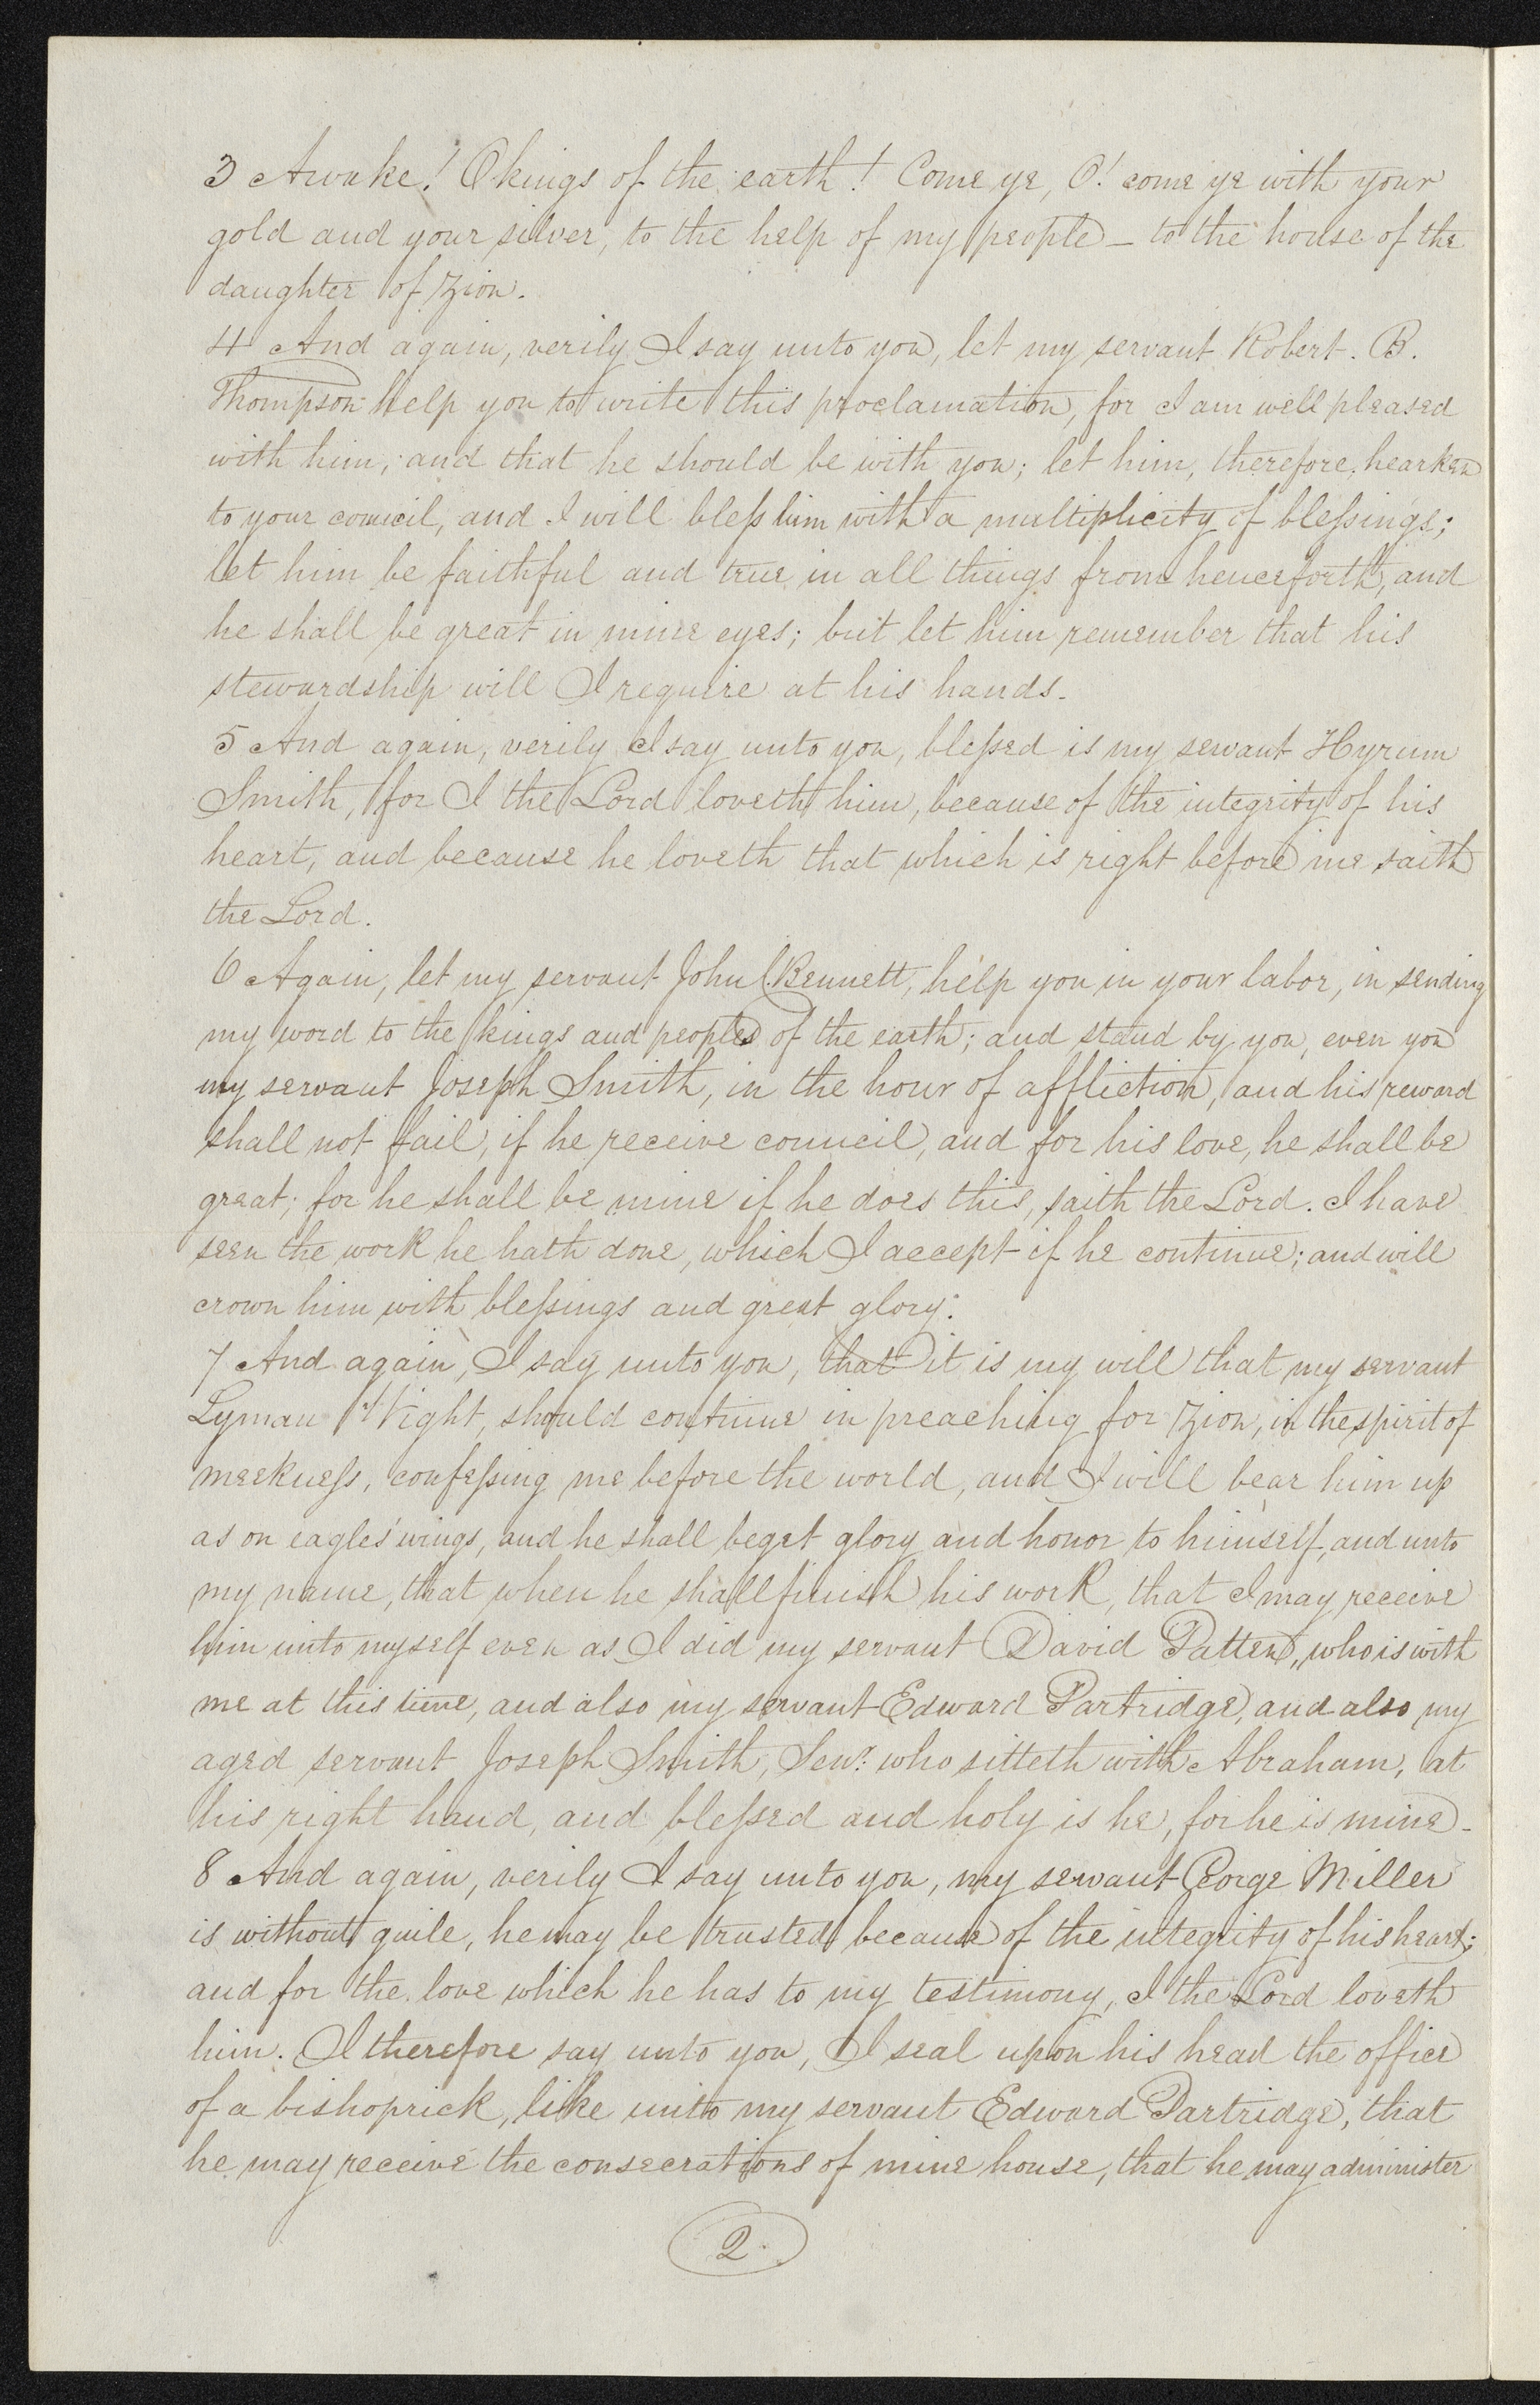 3 Awake! O kings of the earth! Come ye, O! come ye with your
gold and your silver, to the help of my people — to the house of the
daughter of Zion.
4 And again, verily I say unto you, let my servant Robert. B.
Thompson help you to write this proclamation, for I am well pleased
with him, and that he should be with you; let him, therefore, hearken
to your council, and I will bless him with a multiplicity of blessings;
let him be faithful and true in all things from henceforth, and
he shall be great in mine eyes; but let him remember that his
stewardship will I require at his hands.
5 And again, verily I say unto you, blessed is my servant Hyrum
Smith, for I the Lord loveth him, because of the integrity of his
heart, and because he loveth that which is right before me saith
the Lord.
6 Again, let my servant John C. Bennett, help you in your labor, in sending
my word to the kings and people of the earth; and stand by you, even you
my servant Joseph Smith, in the hour of affliction, and his reward
shall not fail, if he receive council, and for his love, he shall be
great; for he shall be mine if he does this, saith the Lord. I have
seen the work he hath done, which I accept if he continue; and will
crown him with blessings and great glory.
7 And again, I say unto you, that it is my will that my servant
Lyman Wight, should continue in preaching for Zion, in the spirit of
meekness, confessing me before the world, and I will bear him up
as on eagles' wings, and he shall beget glory and honor to himself, and unto
my name, that when he shall finish his work, that I may receive
him unto myself even as I did my servant David Patten, who is with
me at this time, and also my servant Edward Partridge, and also my
aged servant Joseph Smith, Senr. who sitteth with Abraham, at
his right hand, and blessed and holy is he, for he is mine.
8 And again, verily I say unto you, my servant George Miller
is without guile, he may be trusted because of the integrity of his heart;
and for the love which he has to my testimony, I the Lord loveth
him. I therefore say unto you, I seal upon his head the office
of a bishoprick, like unto my servant Edward Partridge, that
he may receive the consecrations of mine house, that he may administer
2.